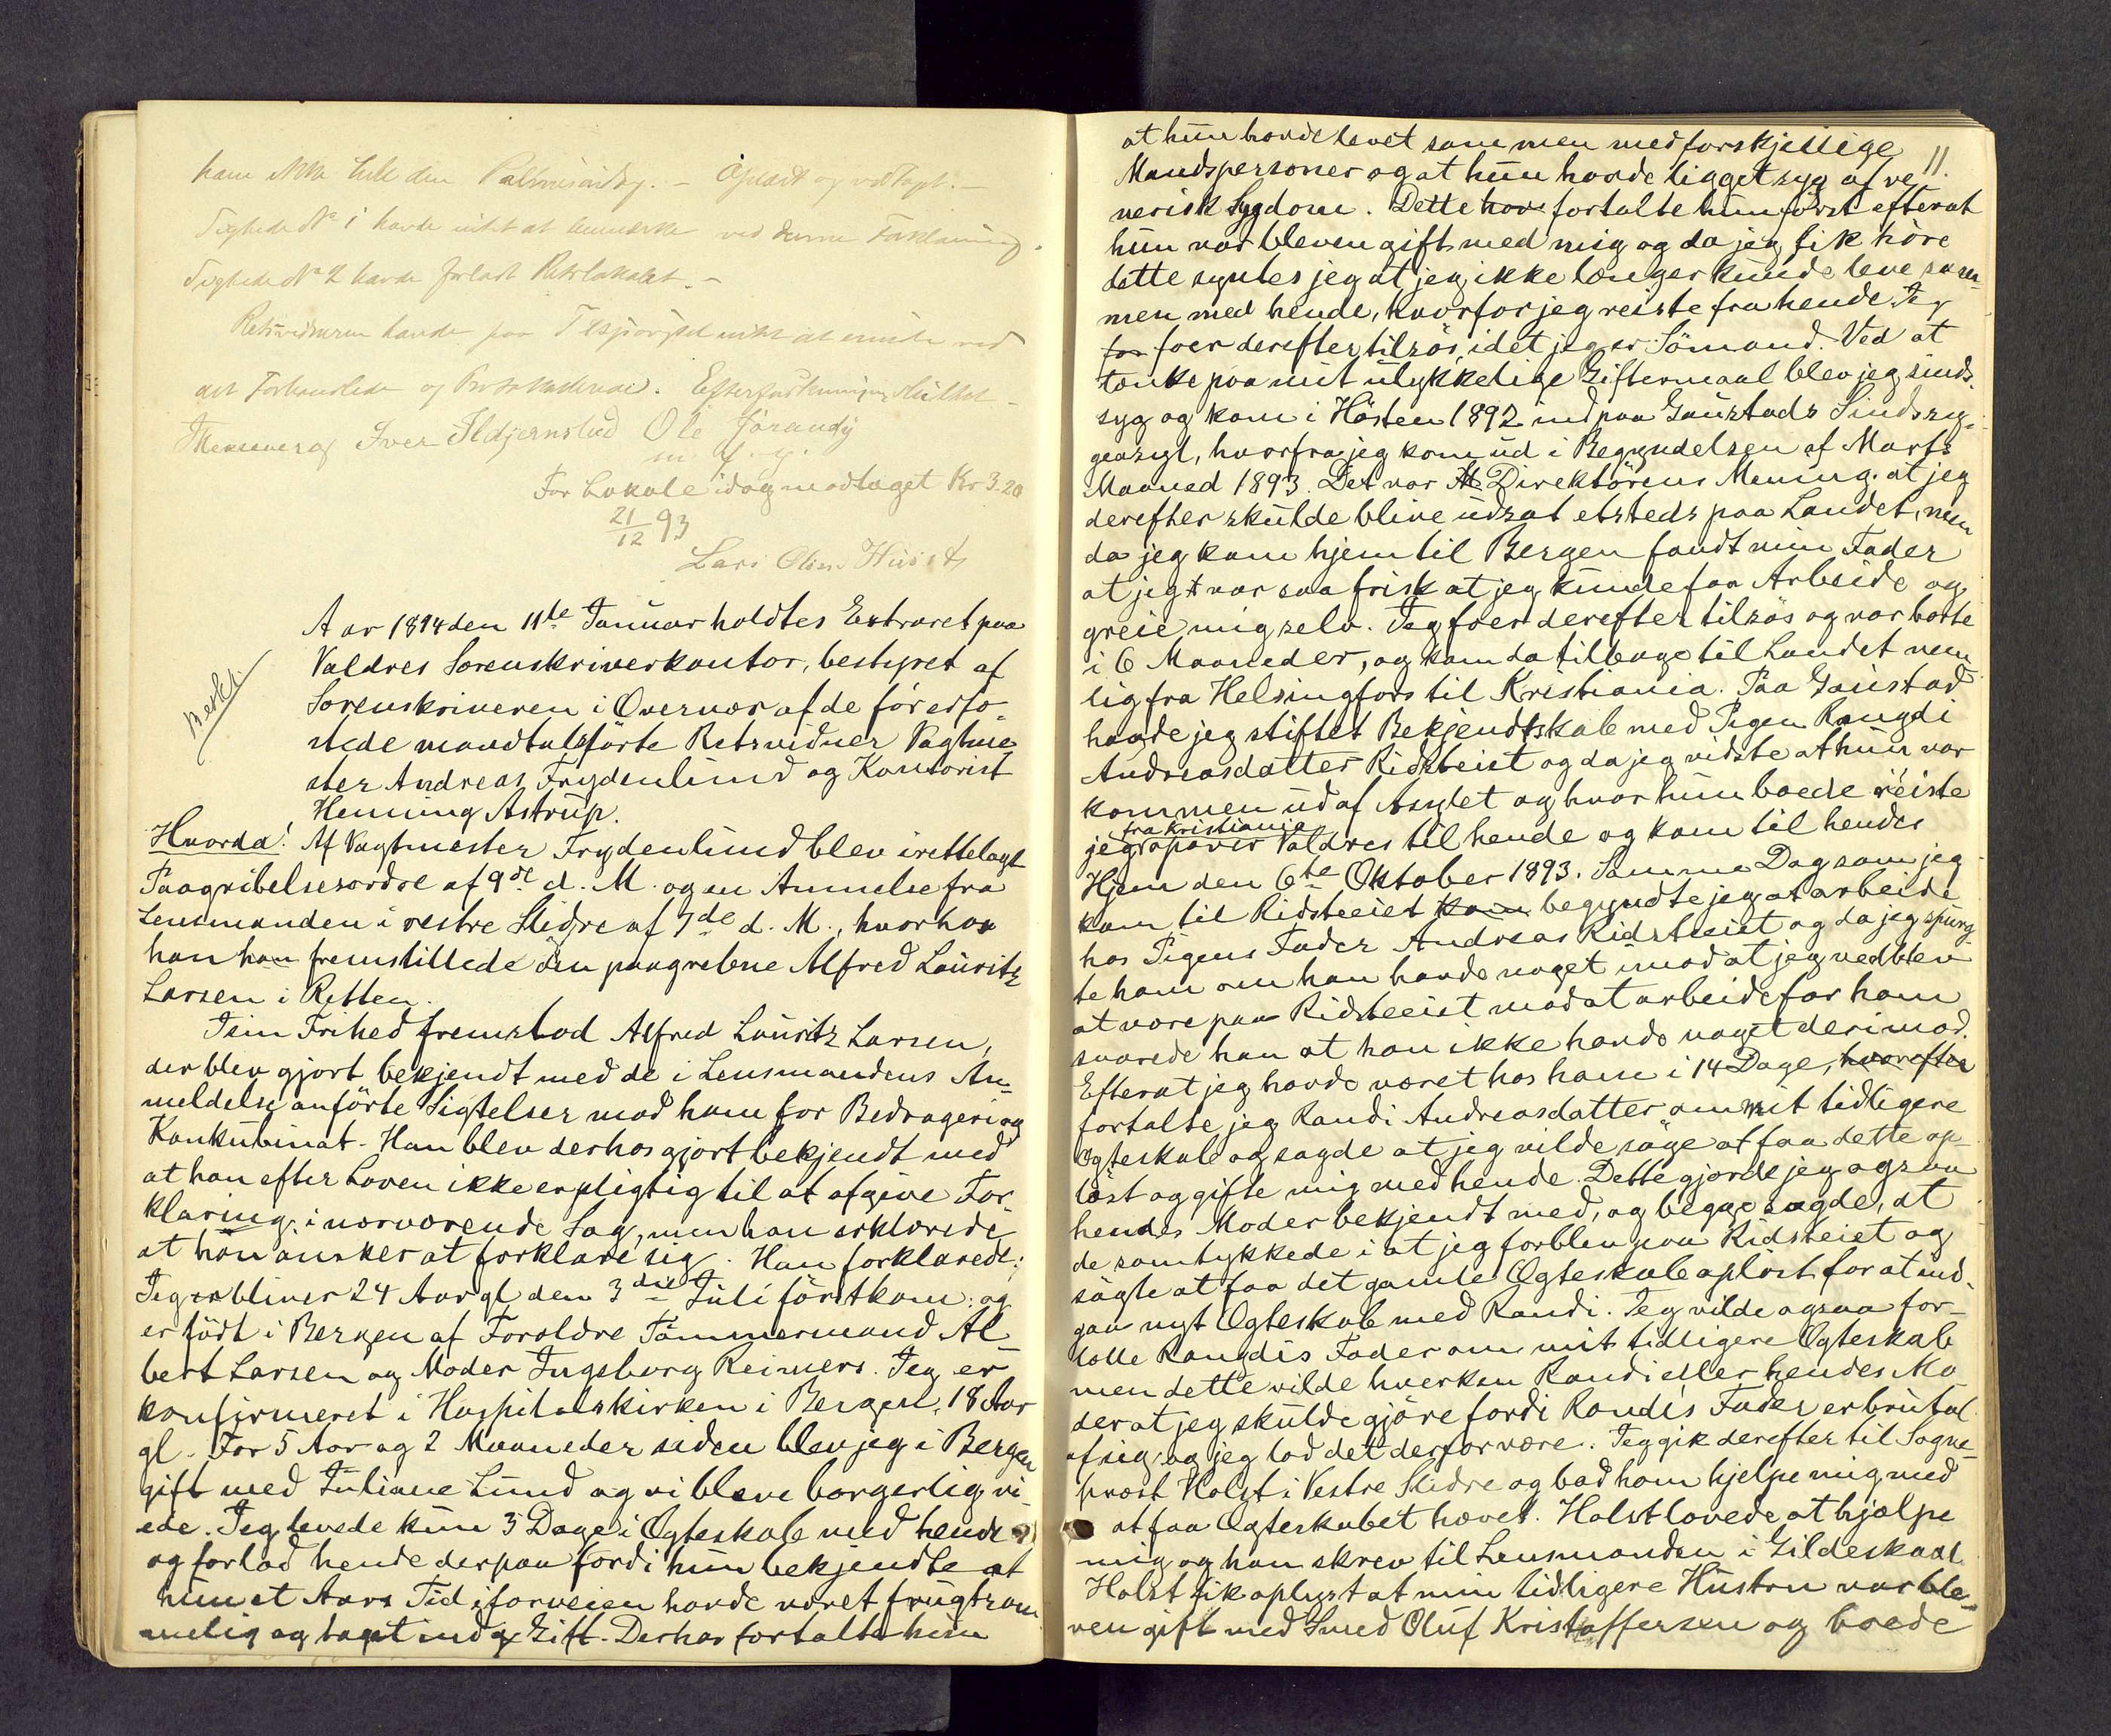 ham ikke hele den Palmesøndag. – Oplæst og vedtaget. –
Sigtede No 1 havde intet at bemærke ved denne Forklaring.
Sigtede No 2 havde forladt Retslokalet. –
Retsvidnerne havde paa Tilspørgsel intet at erindre ved
det Forhandlede og Protokollerede. Efterforskningen sluttet –
Iver Ildjernstad Ole Jörandby
m. f. p.
For Lokale idag modtaget Kr 3.20
21/12 93
Lars Olsen
Aar 1894 den 11te Januar holdtes Extraret paa
Valdres Sorenskriverkontor, bestyret af
Sorenskriveren i Overvær af de för edfæ-
stede mandtalsförte Retsvidner Vagtme-
ster Andreas Frydenlund og Kontorist
Henning Astrup.
Beskr.
Hvorda! Af Vagtmester Frydenlund blev irettelagt
Paagribelsesordre af 9de d. M. og en Anmelse fra
Lensmanden i vestre Slidre af 7de d. M., hvorhos
han han fremstillede den paagrebne Alfred Lauritz
Larsen i Retten.
I sin Frihed fremstod Alfred Lauritz Larsen,
der blev gjort bekjendt med de i Lensmandens An-
meldelse anförte Sigtelser mod ham for Bedrageri og
Konkubinat. Han blev derhos gjort bekjendt med
at han efter Loven ikke er pligtig til at afgive For-
klaring i nærværende Sag, men han erklærede
at han önsker at forklare sig. Han forklarede:
Jeg er bliver 24 Aar gl den 3die Juli förstkom: og
er födt i Bergen af Forældre Tömmermand Al-
bert Larsen og Moder Ingeborg Reimers. Jeg er
konfirmeret i Hospitalskirken i Bergen, 18 Aar
gl. For 5 Aar og 2 Maaneder siden blev jeg i Bergen
gift med Juliane Lund og vi bleve borgerlig vi-
ede. Jeg levede kun 3 Dage i Ægteskab med hende
og forlod hende derpaa fordi hun bekjendte at
hun et Aars Tid iforveien havde været frugtsom-
melig og taget ind Gift. Derhos fortalte hun
11.
at hun havde levet sammen med forskjellige
Mandspersoner og at hun havde ligget syg af ve-
nerisk Sygdom. Dette har fortalte hun först efterat
hun var bleven gift med mig og da jeg fik höre
dette syntes jeg at jeg ikke længer kunde leve sam-
men med hende, hvorfor jeg reiste fra hende. Jeg
for foer derefter tilsös, idet jeg er Sömand. Ved at
tænke paa mit ulykkelige Giftermaal blev jeg sinds-
syg og kom i Hösten 1892 ind paa Gaustads Sindssy-
geasyl, hvorfra jeg kom ud i Begyndelsen af Marts
Maaned 1893. Det var Direktörens Mening, at jeg
derefter skulde blive udsat etsteds paa Landet, men
da jeg kom hjem til Bergen fandt min Fader
at jeg var saa frisk at jeg kunde faa Arbeide og
greie mig selv. Jeg foer derefter tilsös og var borte
i 6 Maaneder, og kom da tilbage til Landet nem-
lig fra Helsingfors til Kristiania. Paa Gaustad
havde jeg stiftet Bekjendtskab med Pigen Rangdi
Andreasdatter Ridsteiet og da jeg vidste at hun var
kommen ud af Asylet og hvor hun boede reiste
fra Kristiania
jeg opover Valdres til hende og kom til hendes
Hjem den 6te Oktober 1893. Samme Dag som jeg
kom til Ridsteeiet kom begyndte jeg at arbeide
hos Pigens Fader Andreas Ridsteiet og da jeg spurg-
te ham om han havde noget imod at jeg vedblev
at være paa Ridsteeiet mod at arbeide for ham
svarede han at han ikke havde noget derimod.
Efterat jeg havde været hos ham i 14 Dage, hvorefter
fortalte jeg Randi Andreasdatter om mit tidligere
Ægteskab og sagde at jeg vilde söge at faa dette op-
löst og gifte mig med hende. Dette gjorde jeg ogsaa
hendes Moder bekjendt med, og begge sagde, at
de samtykkede i at jeg forblev paa Ridsteiet og
sögte at faa det gamle Ægteskab oplöst for at ind-
gaa nyt Ægteskab med Randi. Jeg vilde ogsaa for-
tælle Rangdis Fader om mit tidligere Ægteskab
men dette vilde hverken Randi eller hendes Mo-
der at jeg skulde gjöre fordi Randis Fader er brutal
af sig, og jeg lod det derfor være. Jeg gik derefter til Sogne-
præst Holst i Vestre Slidre og bad ham hjelpe mig med
at faa Ægteskabet hævet. Holst lovede at hjælpe
mig og han skrev til Lensmanden i Gildeskaal.
Holst fik oplyst at min tidligere Hustru var ble-
ven gift med Smed Oluf Kristoffersen og boede